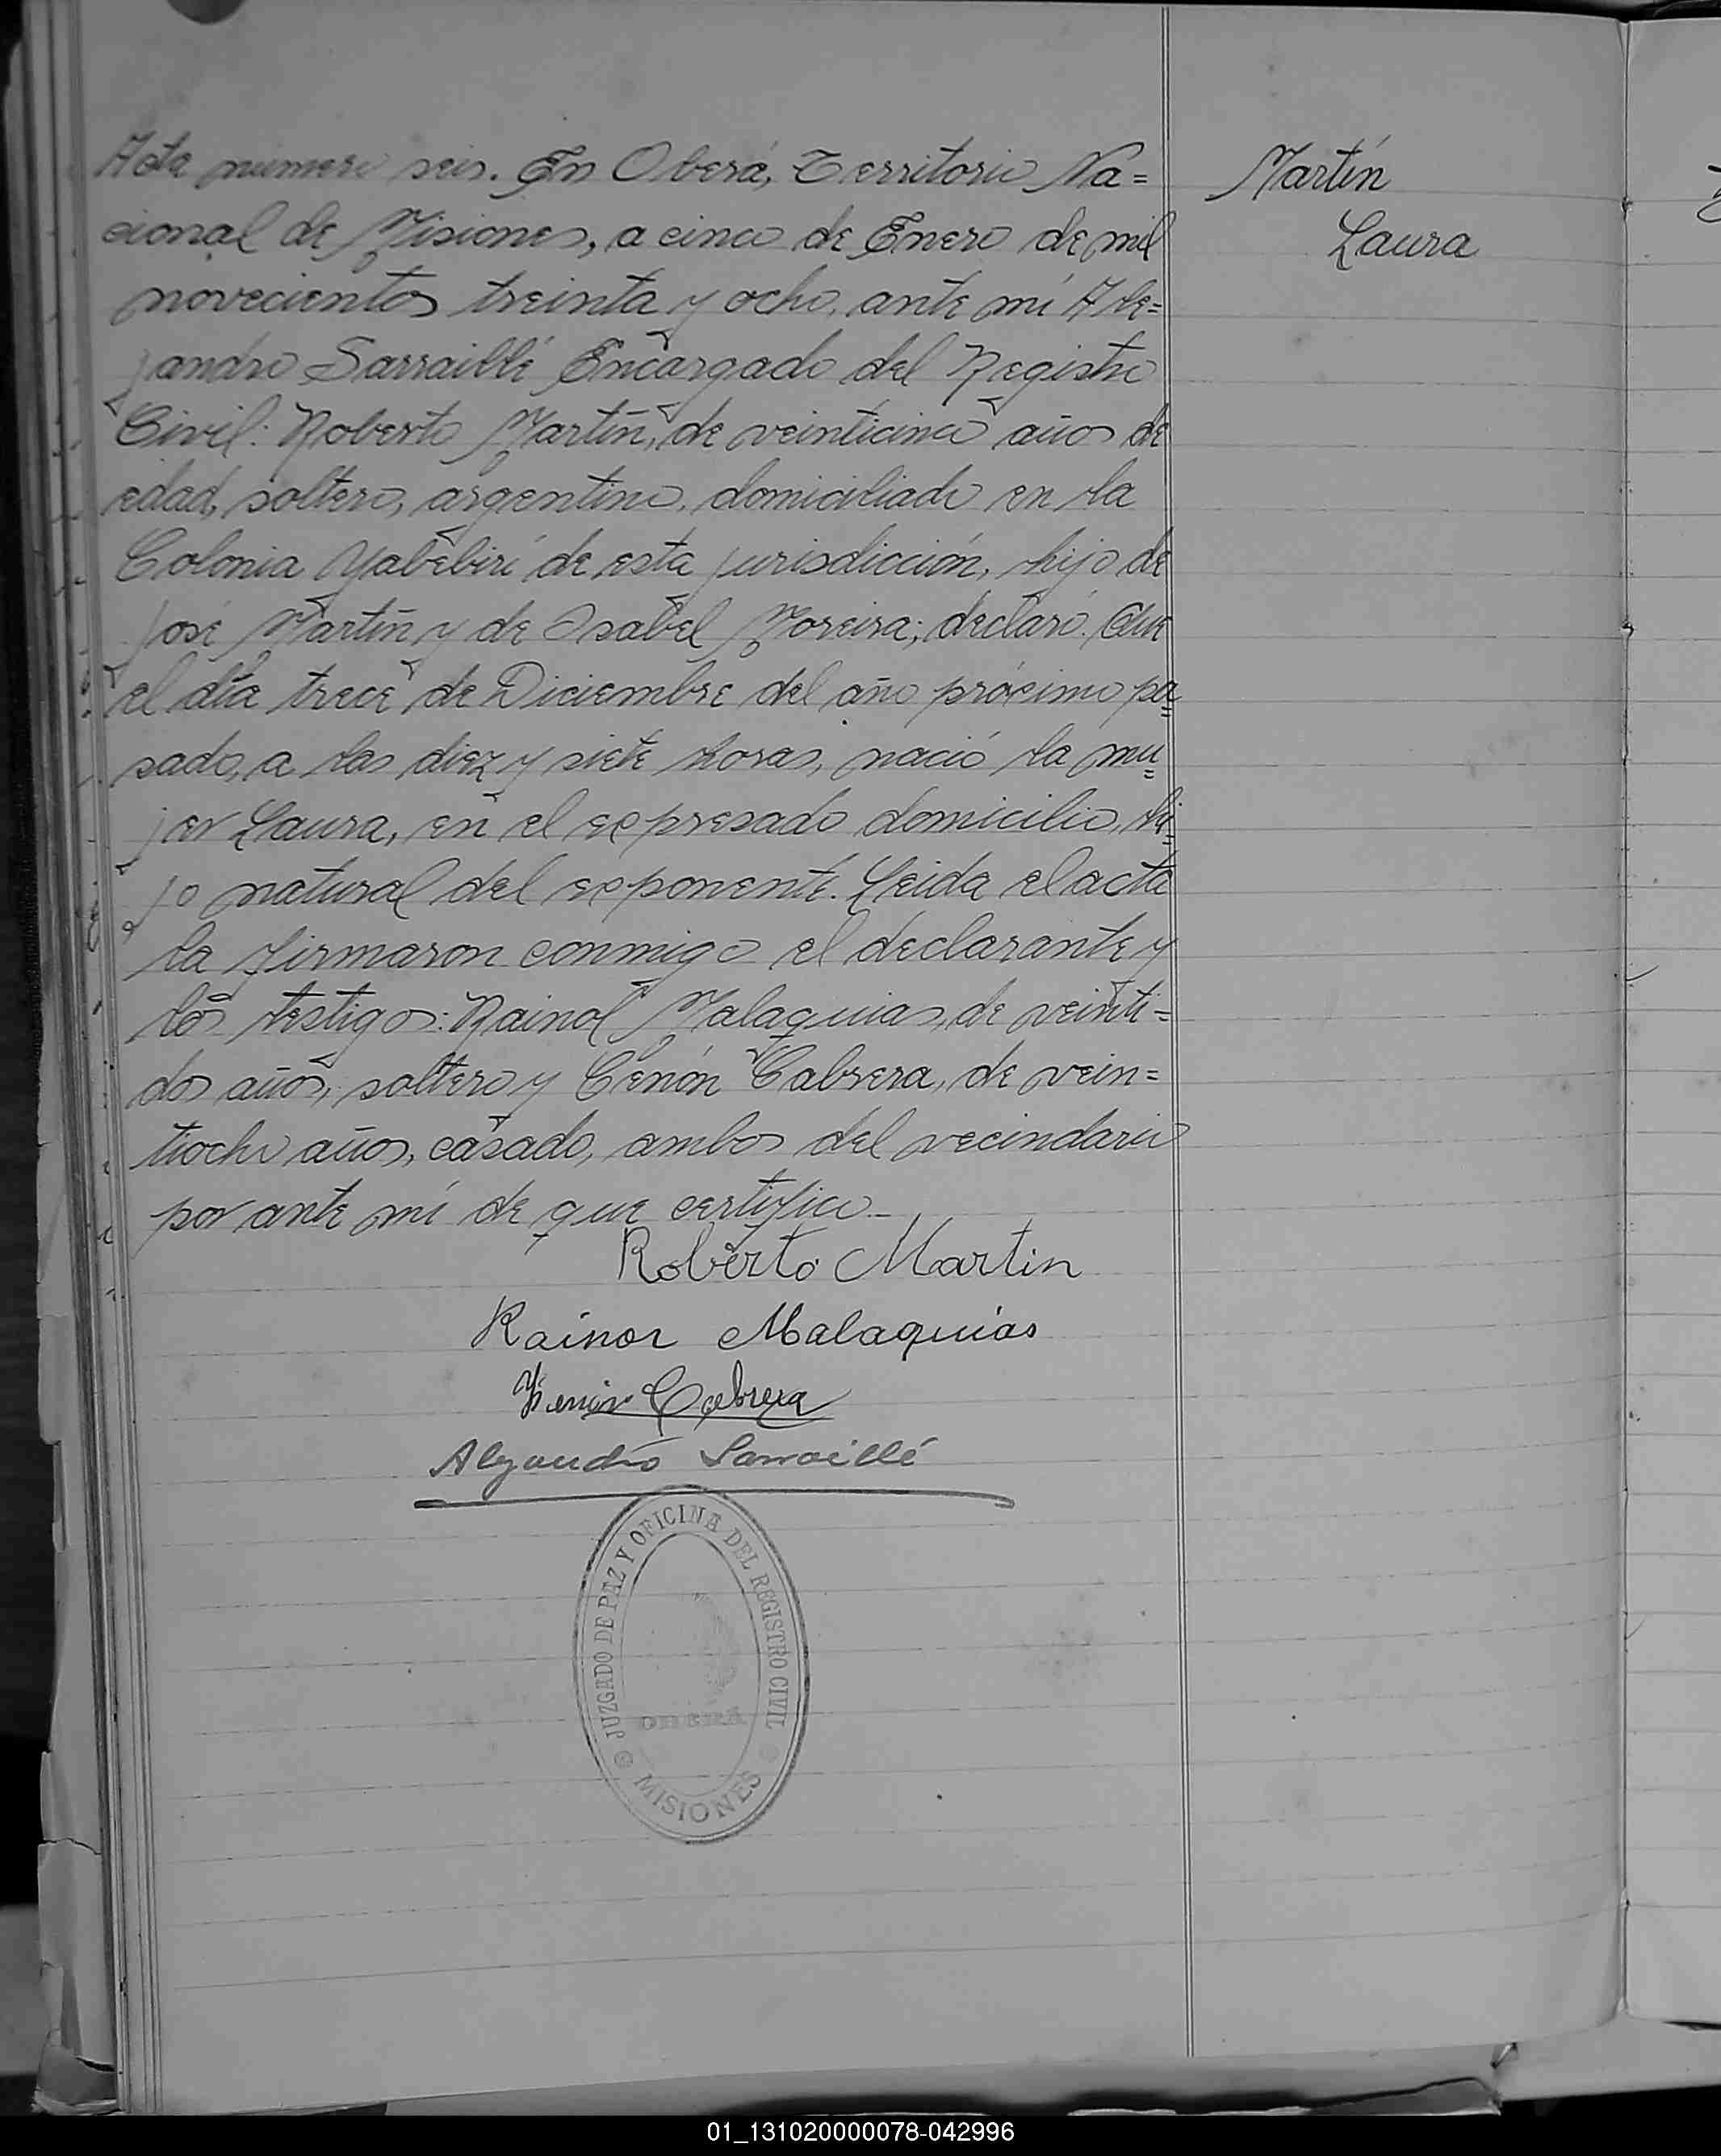 Acta número seis. En Oberá, Territorio Na=
cional de Misiones, a cinco de Enero de mil
novecientos treinta y ocho, ante mí Ale=
jandro Sarraillé Encargado del Registro
Civil: Roberto Martín, de veinticinco años de
edad, soltero, argentino, domiciliado en la
Colonia Yabebirí de esta jurisdicción, hijo de
José Martín y de Isabel Moreira; declaró: Que
el día trece de Diciembre del año próximo pa=
sado, a las diez y siete horas, nació la mu=
jer Laura, en el expresado domicilio, hi=
jo natural del exponente. Leida el acta
la firmaron conmigo el declarante y
los testigos: Rainol Malaquias, de veinti=
dos años, soltero y Cenón Cabrera, de vein=
tiocho años, casado, ambos del vecindario
por ante mí de que certifico.-
Martín
Laura
Roberto Martin
Rainor Malaquias
Cabrera
Alejandro Sarraillé
JUZGADO DE PAZ Y OFICINA DEL REGISTRO CIVIL
OBERÁ
MISIONES
01_131020000078-042996